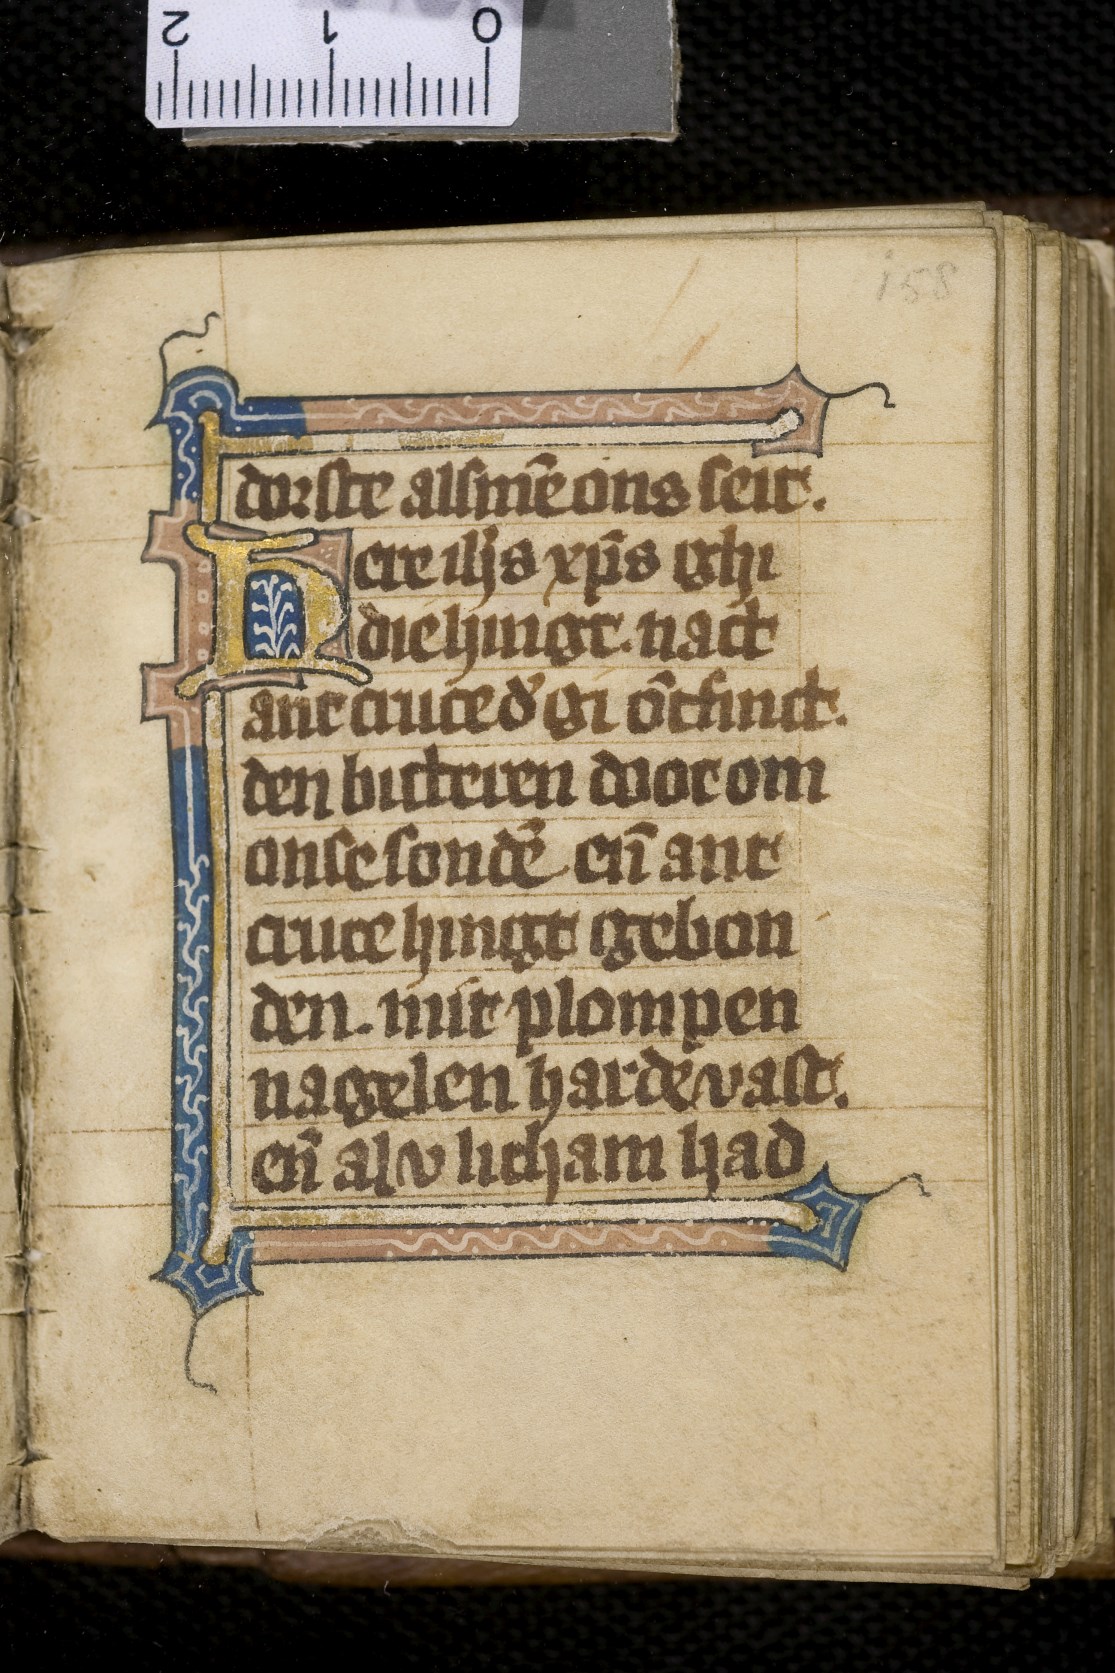 2 1 0
158
dorste alsmē ons seit.
Here ihs xp̄s ghi
die hingt. nact
ant cruce d' gi ōtfinct.
den bitteren doot om
onse sondē en̄ ant
cruce hingt gebon
den. mit plompen
nagelen hardē vast.
en̄ al v licham had